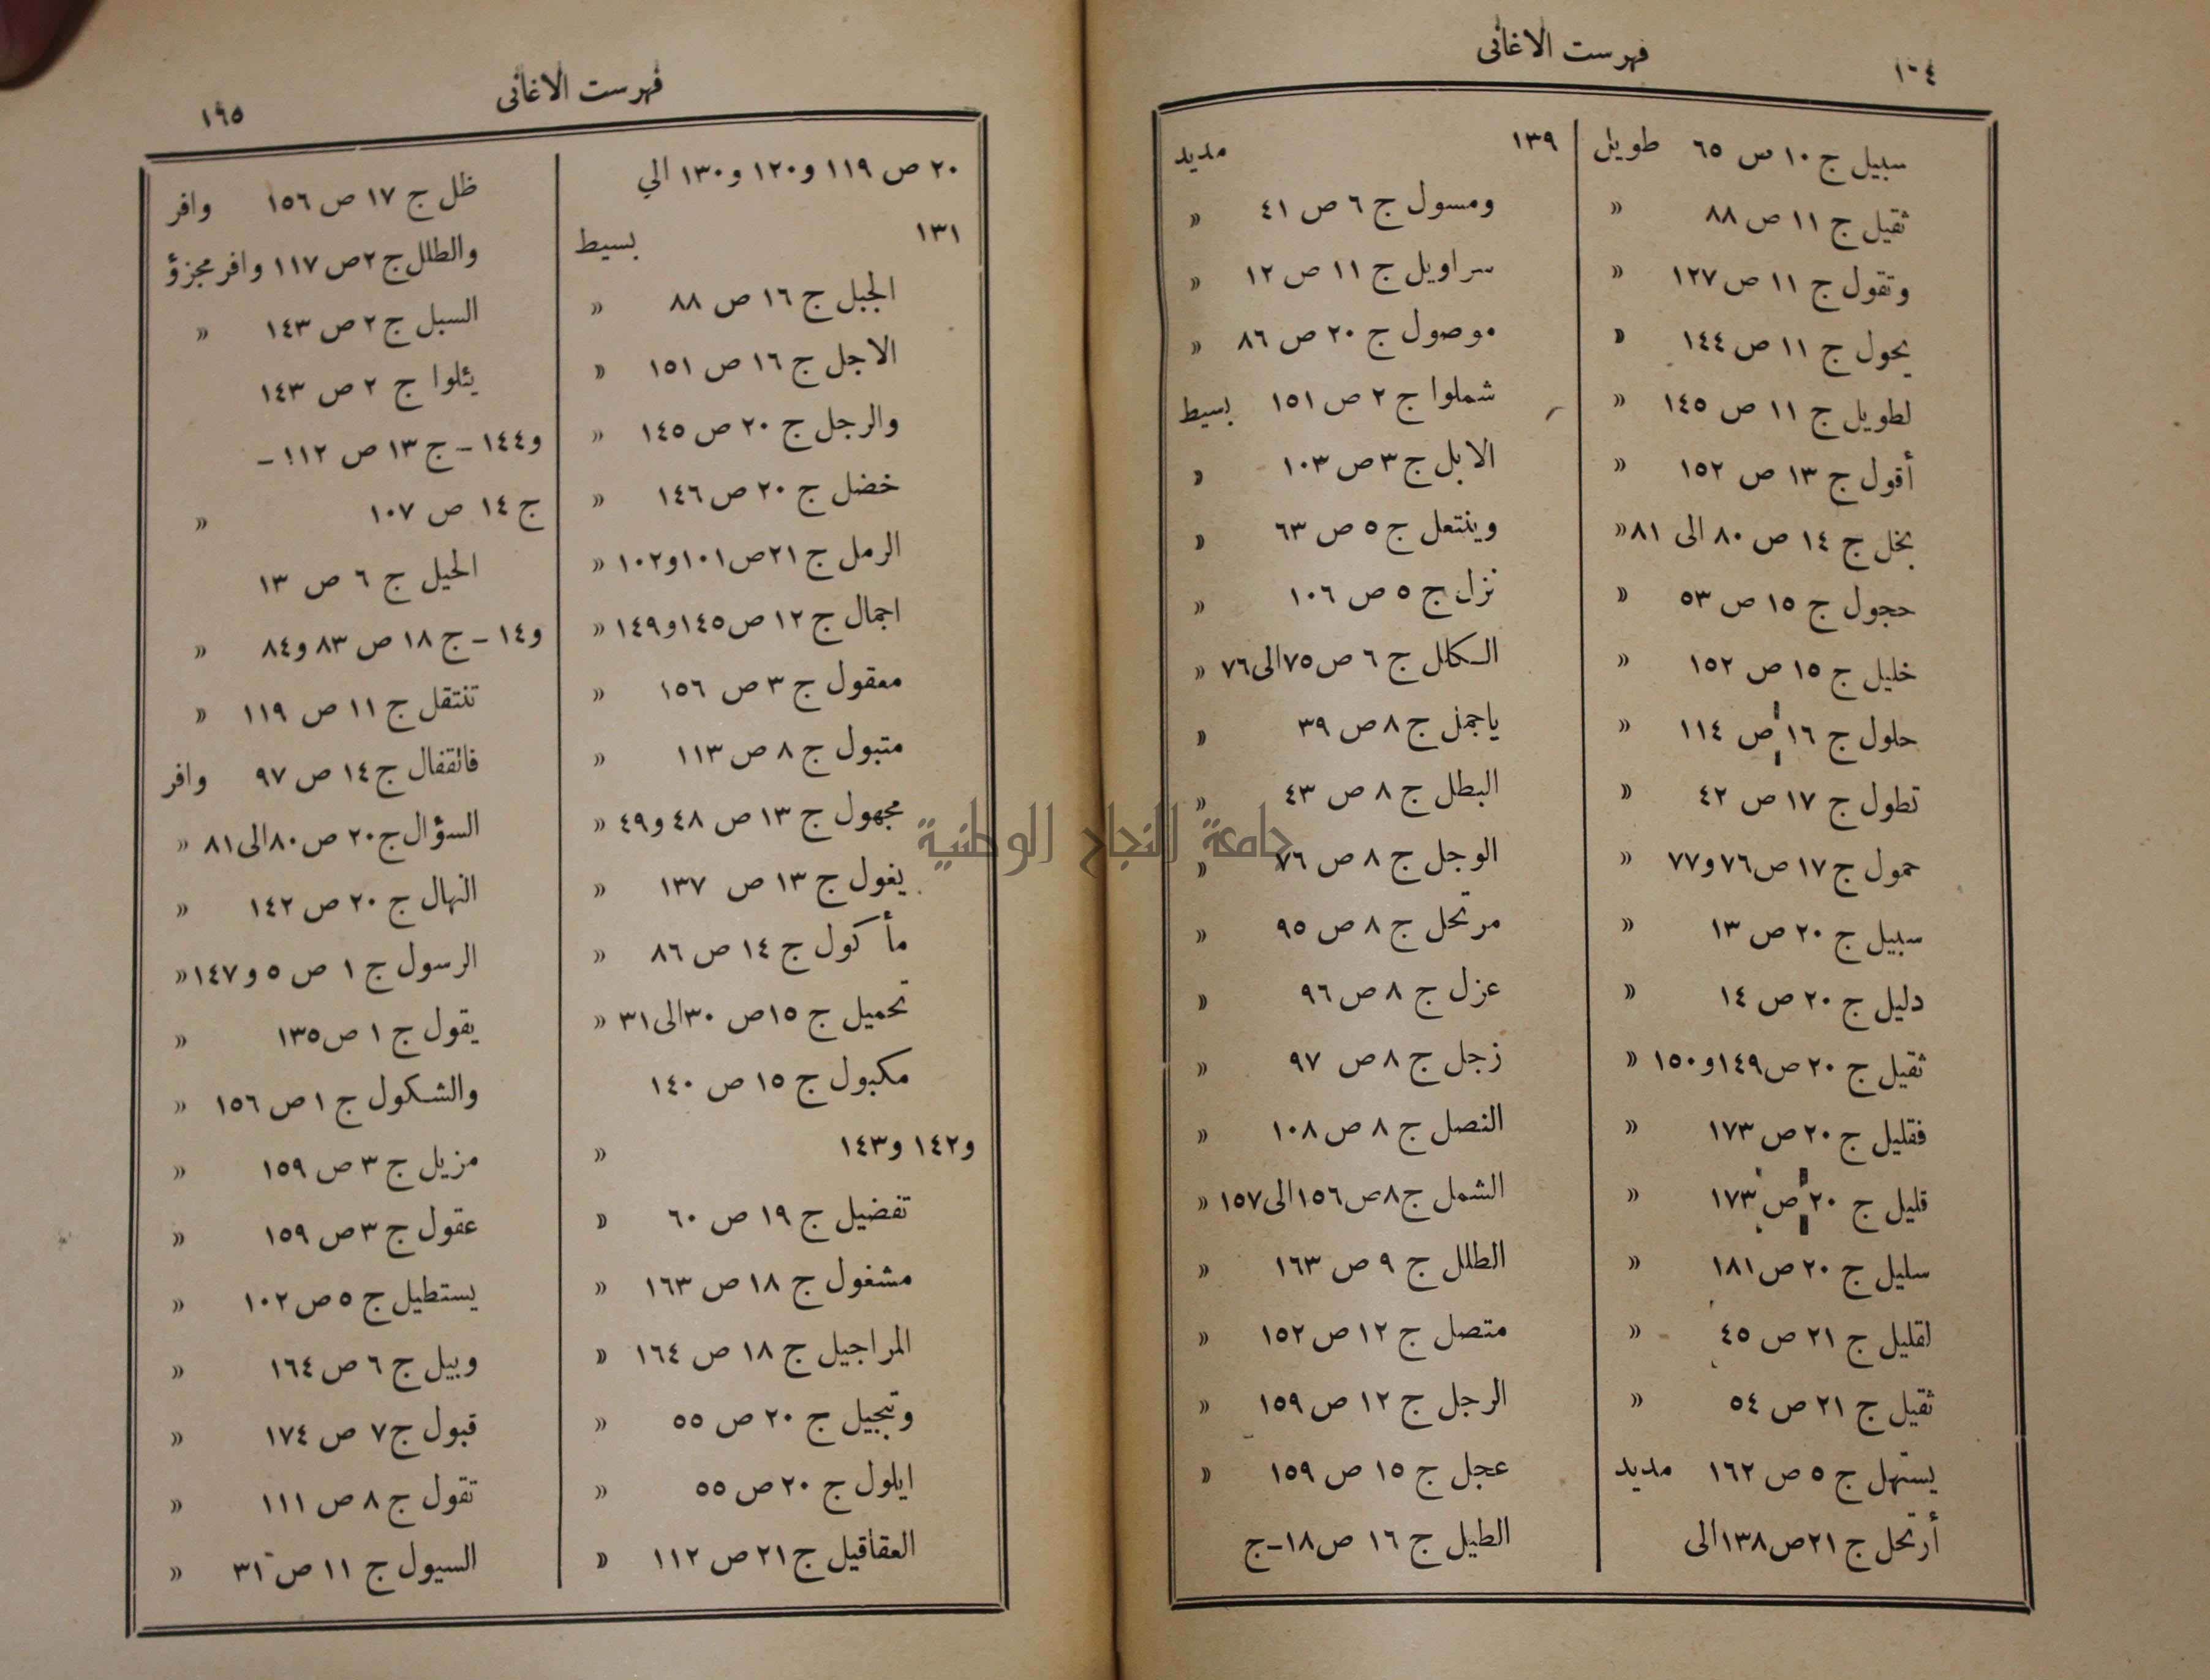 فهرست الاغانى
سبيل ج ١٠ ص ٦٥ طويل
ثقيل ج ١١ ص ٨٨ «
وتقول ج ١١ ص ١٢٧ «
يحول ج ١١ ص ١٤٤ «
لطويل ج ١١ ص ١٤٥ «
أقول ج ١٣ ص ١٥٢ «
بخل ج ١٤ ص ٨٠ الى ٨١ «
حجول ج ١٥ ص ٥٣ «
خليل ج ١٥ ص ١٥٢ «
حلول ج ١٦ ص ١١٤ «
تطول ج ١٧ ص ٤٢ «
حمول ج ١٧ ص ٧٦ و ٧٧ «
سبيل ج ٢٠ ص ١٣ «
دليل ج ٢٠ ص ١٤ «
ثقيل ج ٢٠ ص ١٤٩ و ١٥٠ «
فقليل ج ٢٠ ص ١٧٣ «
قليل ج ٢٠ ص ١٧٣ «
سليل ج ٢٠ ص ١٨١ «
لقليل ج ٢١ ص ٤٥ «
ثقيل ج ٢١ ص ٥٤ «
يستهل ج ٥ ص ١٦٢ مديد
أرتحل ج ٢١ ص ١٣٨ الى
١٣٩ مديد
ومسول ج ٦ ص ٤١ «
سراويل ج ١١ ص ١٢ «
موصول ج ٢٠ ص ٨٦ «
شملوا ج ٢ ص ١٥١ بسيط
الابل ج ٣ ص ١٠٣ «
وينتعل ج ٥ ص ٦٣ «
نزل ج ٥ ص ١٠٦ «
الكلل ج ٦ ص ٧٥ الى ٧٦ «
ياجمل ج ٨ ص ٣٩ «
البطل ج ٨ ص ٤٣ «
الوجل ج ٨ ص ٧٦ «
مرتحل ج ٨ ص ٩٥ «
عزل ج ٨ ص ٩٦ «
زجل ج ٨ ص ٩٧ «
النصل ج ٨ ص ١٠٨ «
الشمل ج ٨ ص ١٥٦ الى ١٥٧ «
الطلل ج ٩ ص ١٦٣ «
متصل ج ١٢ ص ١٥٢ «
الرجل ج ١٢ ص ١٥٩ «
عجل ج ١٥ ص ١٥٩ «
الطيل ج ١٦ ص ١٨ - ج
فهرست الاغانى
١٩٥
٢٠ ص ١١٩ و ١٢٠ و ١٣٠ الي
١٣١ بسيط
الجبل ج ١٦ ص ٨٨ «
الاجل ج ١٦ ص ١٥١ «
والرجل ج ٢٠ ص ١٤٥ «
خضل ج ٢٠ ص ١٤٦ «
الرمل ج ٢١ ص ١٠١ و ١٠٢ «
اجمال ج ١٢ ص ١٤٥ و ١٤٩ «
معقول ج ٣ ص ١٥٦ «
متبول ج ٨ ص ١١٣ «
مجهول ج ١٣ ص ٤٨ و ٤٩ «
يغول ج ١٣ ص ١٣٧ «
مأكول ج ١٤ ص ٨٦ «
تحميل ج ١٥ ص ٣٠ الى ٣١ «
مكبول ج ١٥ ص ١٤٠
و ١٤٢ و ١٤٣ «
تفضيل ج ١٩ ص ٦٠ «
مشغول ج ١٨ ص ١٦٣ «
المراجيل ج ١٨ ص ١٦٤ «
وتبجيل ج ٢٠ ص ٥٥ «
ايلول ج ٢٠ ص ٥٥ «
العقاقيل ج ٢١ ص ١١٢ «
ظل ج ١٧ ص ١٥٦ وافر
والطلل ج ٢ ص ١١٧ وافر مجزؤ
السبل ج ٢ ص ١٤٣ «
يئلوا ج ٢ ص ١٤٣
و ١٤٤ - ج ١٣ ص ١١٢ -
ج ١٤ ص ١٠٧ «
الحيل ج ٦ ص ١٣
و ١٤ - ج ١٨ ص ٨٣ و ٨٤ «
تنتقل ج ١١ ص ١١٩ «
فاثقفال ج ١٤ ص ٩٧ وافر
السؤال ج ٢٠ ص ٨٠ الى ٨١ «
النهال ج ٢٠ ص ١٤٢ «
الرسول ج ١ ص ٥ و ١٤٧ «
يقول ج ١ ص ١٣٥ «
والشكول ج ١ ص ١٥٦ «
مزيل ج ٣ ص ١٥٩ «
عقول ج ٣ ص ١٥٩ «
يستطيل ج ٥ ص ١٠٢ «
وبيل ج ٦ ص ١٦٤ «
قبول ج ٧ ص ١٧٤ «
تقول ج ٨ ص ١١١ «
السيول ج ١١ ص ٣١ «
جامعة النجاح الوطنية